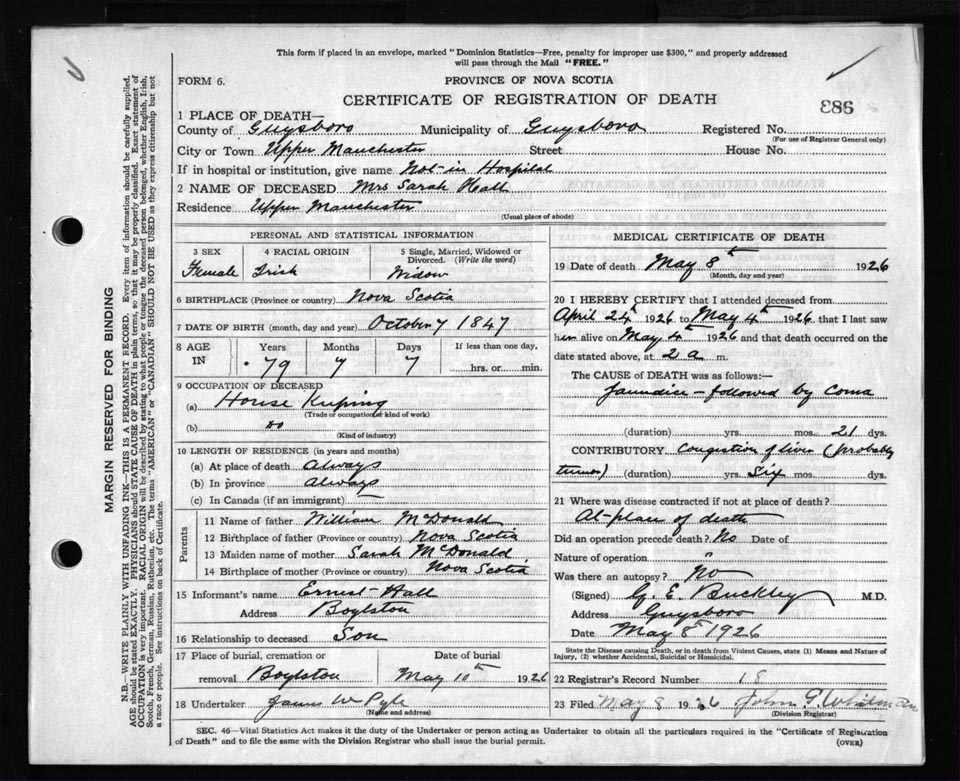 This form if placed in an envelope, marked "Dominion Statistics—Free, penalty for improper use $300," and properly addressed
will pass through the Mail "FREE."
FORM 6.
PROVINCE OF NOVA SCOTIA
CERTIFICATE OF REGISTRATION OF DEATH
983
1 PLACE OF DEATH—
County of Guysboro Municipality of Guysboro Registered No.
(For use of Registrar General only)
City or Town Upper Manchester Street House No.
If in hospital or institution, give name Not-in Hospital
2 NAME OF DECEASED Mrs Sarah Hall
Residence Upper Manchester
(Usual place of abode)
PERSONAL AND STATISTICAL INFORMATION
3 SEX 4 RACIAL ORIGIN 5 Single, Married, Widowed or Divorced. (Write the word)
Female Irish Widow
6 BIRTHPLACE (Province or country) Nova Scotia
7 DATE OF BIRTH (month, day and year) October 7 1847
8 AGE IN Years Months Days If less than one day,
79 7 7 hrs. or min.
9 OCCUPATION OF DECEASED
(a) House Keeping
(Trade or occupation or kind of work)
(b) do
(Kind of industry)
10 LENGTH OF RESIDENCE (in years and months)
(a) At place of death Always
(b) In province always
(c) In Canada (if an immigrant)
Parents
11 Name of father William McDonald
12 Birthplace of father (Province or country) Nova Scotia
13 Maiden name of mother Sarah McDonald
14 Birthplace of mother (Province or country) Nova Scotia
15 Informant's name Ernest Hall
Address Boylston
16 Relationship to deceased Son
17 Place of burial, cremation or removal Boylston Date of burial May 10th 1926
18 Undertaker James W Pyle
(Name and address)
MEDICAL CERTIFICATE OF DEATH
19 Date of death May 8th 1926
(Month, day and year)
20 I HEREBY CERTIFY that I attended deceased from
April 24th 1926 to May 4th 1926 that I last saw
her alive on May 4th 1926 and that death occurred on the
date stated above, at 2 a m.
The CAUSE of DEATH was as follows:—
Jaundice - followed by Coma
(duration) yrs. mos. 21 dys.
CONTRIBUTORY Congestion of liver (probably
tumor) (duration) yrs. Six mos. dys.
21 Where was disease contracted if not at place of death?
At-place of death
Did an operation precede death? No Date of
Nature of operation "
Was there an autopsy? No
(Signed) G. E. Buckley M.D.
Address Guysboro
Date May 8th 1926
State the Disease causing Death, or in death from Violent Causes, state (1) Means and Nature of
Injury, (2) whether Accidental, Suicidal or Homicidal.
22 Registrar's Record Number 18
23 Filed May 8 1926 John G. Whitman
(Division Registrar)
SEC. 46—Vital Statistics Act makes it the duty of the Undertaker or person acting as Undertaker to obtain all the particulars required in the "Certificate of Registration
of Death" and to file the same with the Division Registrar who shall issue the burial permit.
(OVER)
MARGIN RESERVED FOR BINDING
N.B.—WRITE PLAINLY WITH UNFADING INK—THIS IS A PERMANENT RECORD. Every item of information should be carefully supplied.
AGE should be stated EXACTLY. PHYSICIANS should STATE CAUSE OF DEATH in plain terms, so that it may be properly classified. Exact statement of
OCCUPATION is very important. RACIAL ORIGIN will be described by stating to what people or tongue the deceased person belonged, whether English, Irish,
Scotch, French, German, Russian, Ruthenian, etc. The terms "AMERICAN" or "CANADIAN" SHOULD NOT BE USED as they express citizenship but not
a race or people. See instructions on back of Certificate.